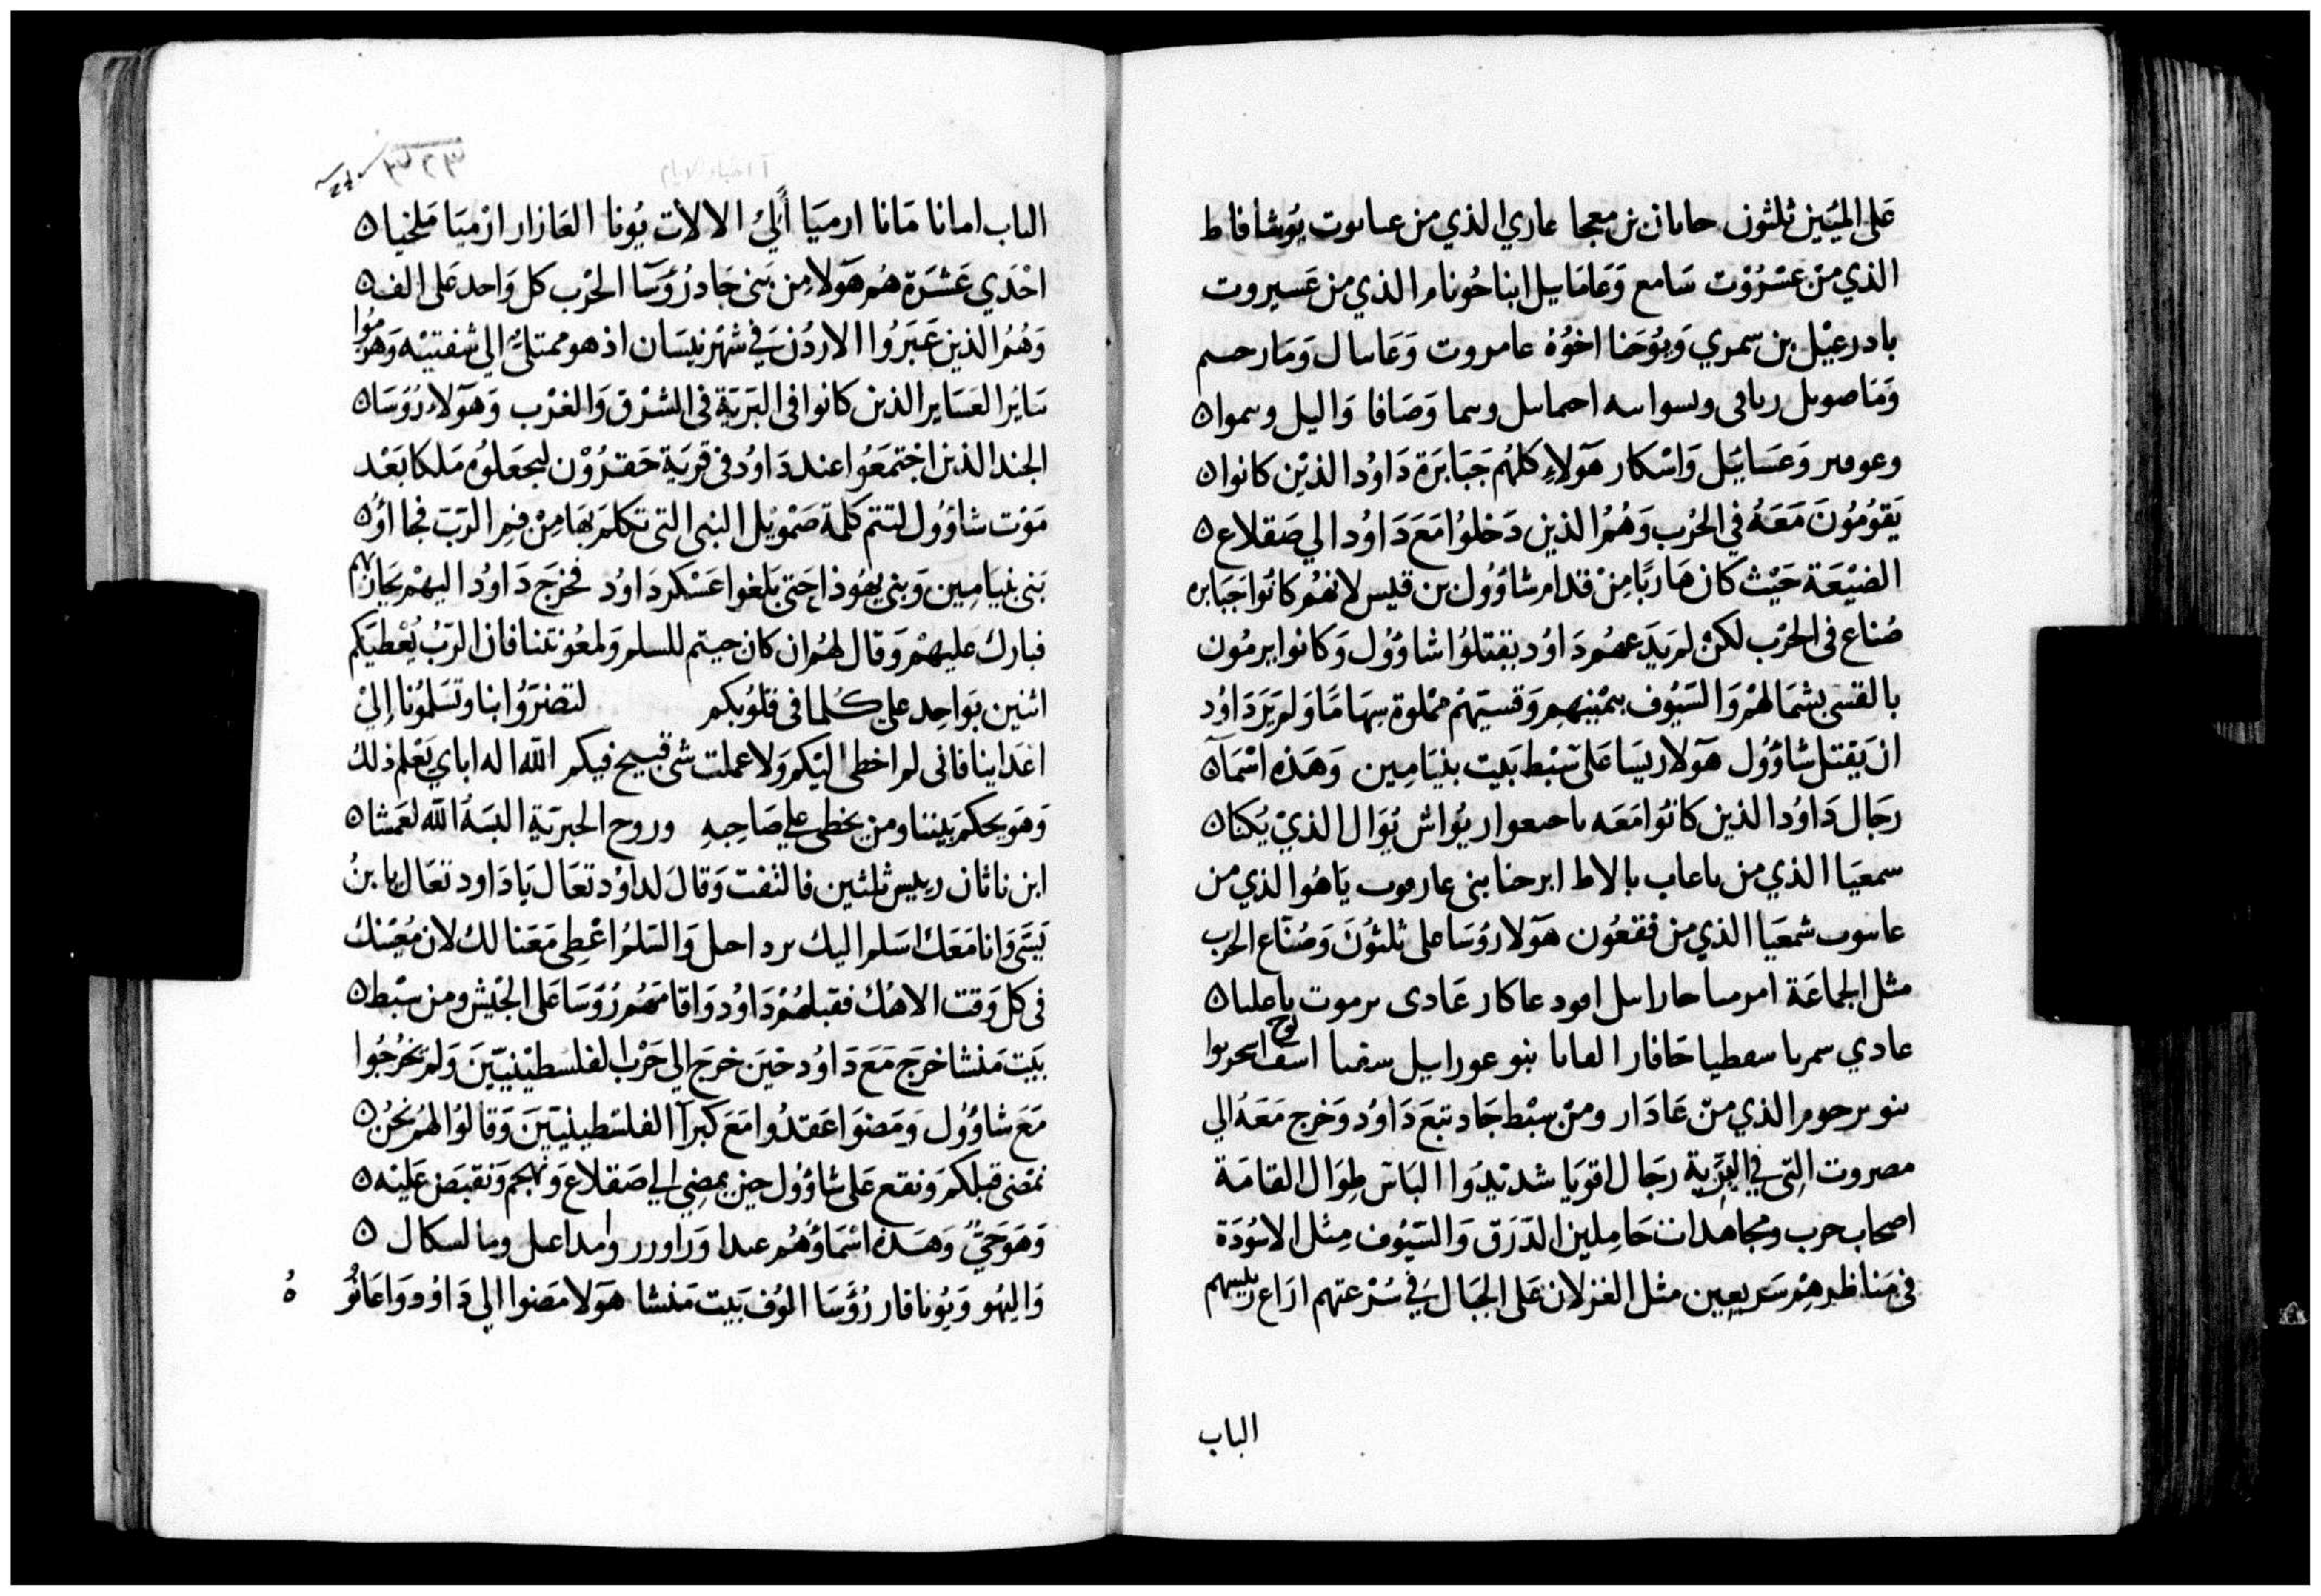 على الميئين ثلثون حامان بن معجا عاري الذي من عسابوت يوشافاط
الذي من عسروت سامع وعاماييل ابنا حونام الذي من عسيروت
بادرعيل بن سمري ويوحنا اخوه عامروت وعاسال ومارحسم
وماصويل رباقى وسواسه احماسل وسما وصافا واليل وسموا
وعوقير وعساييل واسكار هولاء كلهم جبابرة داود الذين كانوا
يقومون معه في الحرب وهم الذين دخلوا مع داود الي صقلاع
الضيعة حيث كان هاربا من قدام شاؤول بن قيس لانهم كانوا جبابره
صناع في الحرب لكن لم يدعهم داود يقتلوا شاؤول وكانوا يرمون
بالقسي بشمالهم والسيوف بيمينهم وقسيهم مملوة سهاما ولم يرد داود
ان يقتل شاؤول هولا ريسا على سبط بيت بنيامين وهذه اسما
رجال داود الذين كانوا معه يواش يوال الذي يكنا
سمعيا الذي من باعاب بالاط ابرحنا بني عارموت ياهوا الذي من
شمعيا الذي من فقعون هولا روسا على ثلثون وصناع الحرب
مثل الجماعة عاكار عادى برموت باعليا
عادي سمريا سفطيا حافار القانا بنو عورابيل
بنو برحوم الذي من عادار ومن سبط جاد تبع داود وخرج معه الي
مصروت التي في البرية رجال اقويا شديدوا الباس طوال القامة
اصحاب حرب ومجاهدات حاملين الدرق والسيوف مثل الاسودة
في مناظرهم سريعين مثل الغزلان على الجبال في سرعتهم اراع رييسهم
الباب
آ اخبار الايام
الباب امانا مانا ارميا ألي الالات يونا العازار ارميا ملخيا
احدي عشرة هم هولا من بني جاد رؤسا الحرب كل واحد على الف
وهم الذين عبروا الاردن في شهر نيسان اذ هو ممتلئ الي شفتيه وهزموا
ساير العساير الذين كانوا في البرية في الشرق والغرب وهولاء رؤسا
الجند الذين اجتمعوا عند داود في قرية حقرون ليجعلوه ملكا بعد
موت شاؤول لتتم كلمة صمويل النبي التي تكلم بها من فم الرب فجاؤ
بني بنيامين وبني يهوذا حتى بلغوا عسكر داود فخرج داود اليهم يحاربهم
فبارك عليهم وقال لهم ان كان جيتم للسلم ولمعونتنا فان الرب يعطيكم
اثنين بواحد على كلما في قلوبكم لتضروا بنا وتسلمونا إلي
اعداينا فاني لم اخطي اليكم ولا عملت شى قبيح فيكم الله اله اباي يعلم ذلك
وهو يحكم بيننا ومن يخطي علي صاحبه وروح الجبرية البسه الله لعمشا
ابن ناثان رييس ثلثين فالتفت وقال لداود تعال يا داود تعال يا بن
يسى وانا معك اسلم اليك والسلم اعطي معنا لك لان معينك
في كل وقت الاهك فقبلهم داود واقامهم رؤسا على الجيش ومن سبط
بيت منشا خرج مع داود حين خرج الي حرب الفلسطينيين ولم يخرجوا
مع شاؤول ومضوا عقدوا مع كبرا الفلسطينيين وقالوا لهم نحن
نمضي قبلكم ونقع على شاؤول حين يمضي الي صقلاع ونهجم ونقبض عليه
وهو حي وهذه اسماؤهم عبدا وراورر وامداعيل ومالسكال
واليهو ويونافار رؤسا الوف بيت منشا هولا مضوا الي داود واعانوه